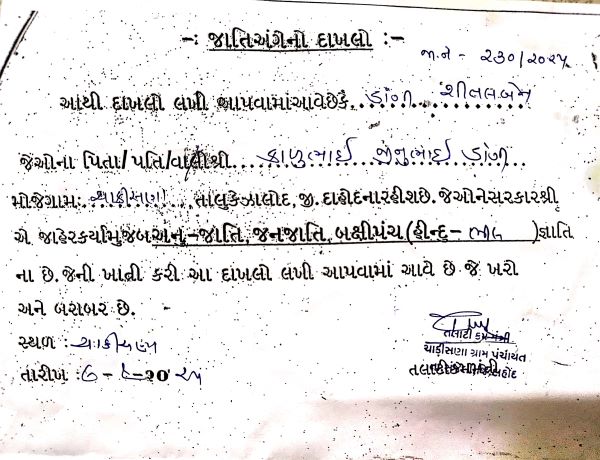 -: જાતિઅંગેનો દાખલો :-
જા.નં - ૨૩૦/૨૦૨૫
આથી દાખલો લખી આપવામાંઆવેછેકે, ડાંગી શીતલબેન
જેઓના પિતા/પતિ/વાલીશ્રી કાળુભાઈ જીનુભાઈ ડાંગી
મોજેગામ: ચાકીસણા તાલુકેઝાલોદ, જી. દાહોદનારહીશછે. જેઓનેસરકારશ્રી
એ જાહેરકર્યામુજબઅનુ-જાતિ, જનજાતિ, બક્ષીપંચ(હીન્દુ- ભીલ )જ્ઞાતિ
ના છે. જેની ખાત્રી કરી આ દાખલો લખી આપવામાં આવે છે જે ખરો
અને બરાબર છે.
સ્થળ : ચાકીસણા
તારીખ : ૯-૬-૨૦૨૫
તલાટી કમ મંત્રી
ચાકીસણા ગ્રામ પંચાયત